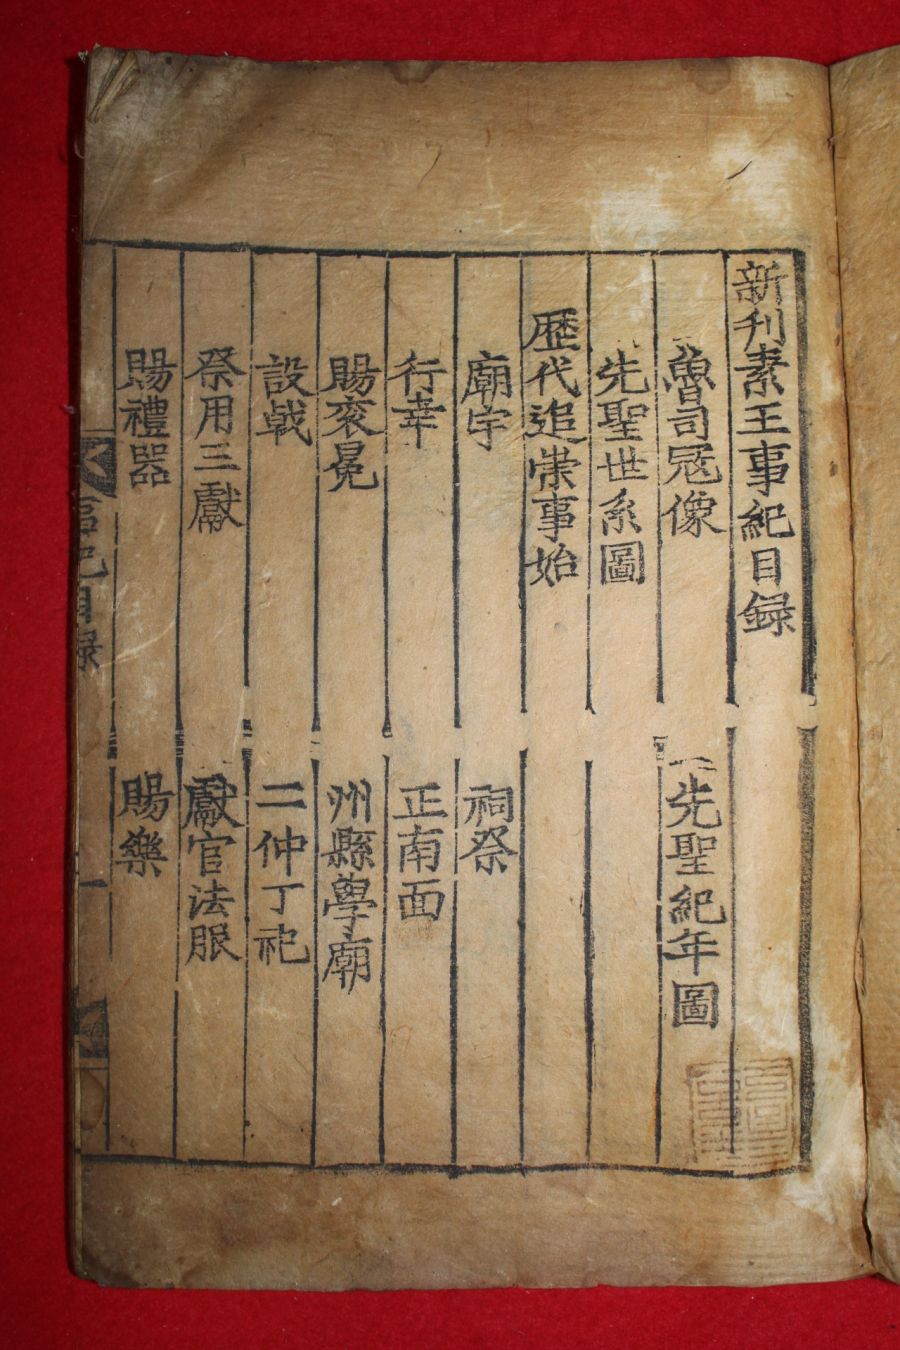 新刊素王事紀目録
魯司寇像
先聖紀年圖
先聖世系圖
歷代追崇事始
廟宇
祠祭
行幸
正南面
賜衮冕
州縣學廟
設戟
二仲丁祀
祭用三獻
獻官法服
賜禮器
賜樂
事紀目録
一